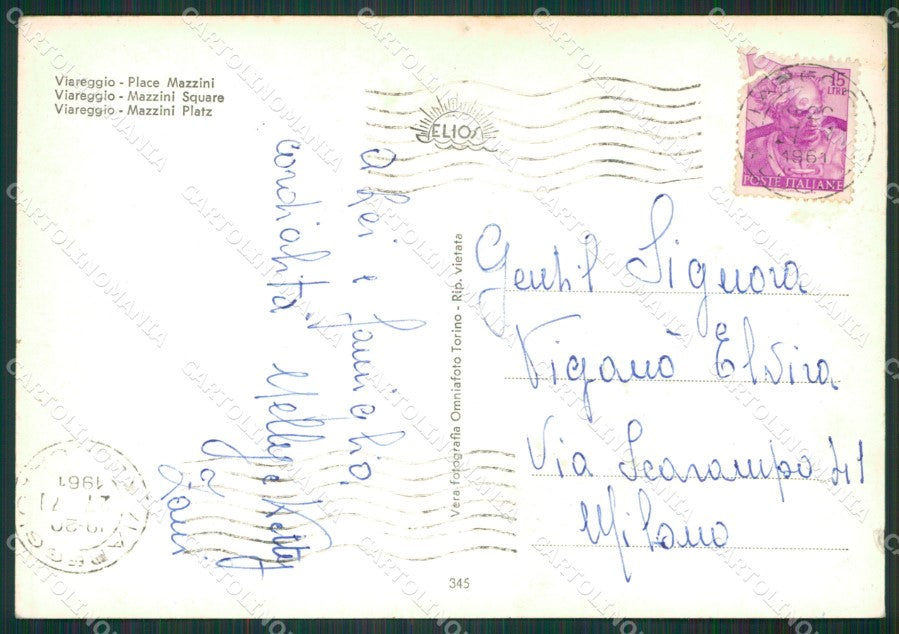 Viareggio - Place Mazzini
Viareggio - Mazzini Square
Viareggio - Mazzini Platz
ELIOS
15
LIRE
1961
POSTE ITALIANE
a Lei e famiglia
cordialità. Nelly e
Vera fotografia Omniafoto Torino - Rip. vietata
Gentil Signora
Viganò Elvira
Via Scarampo 41
Milano
VIAREGGIO
19-20
1961
345
CARTOLINOMANIA